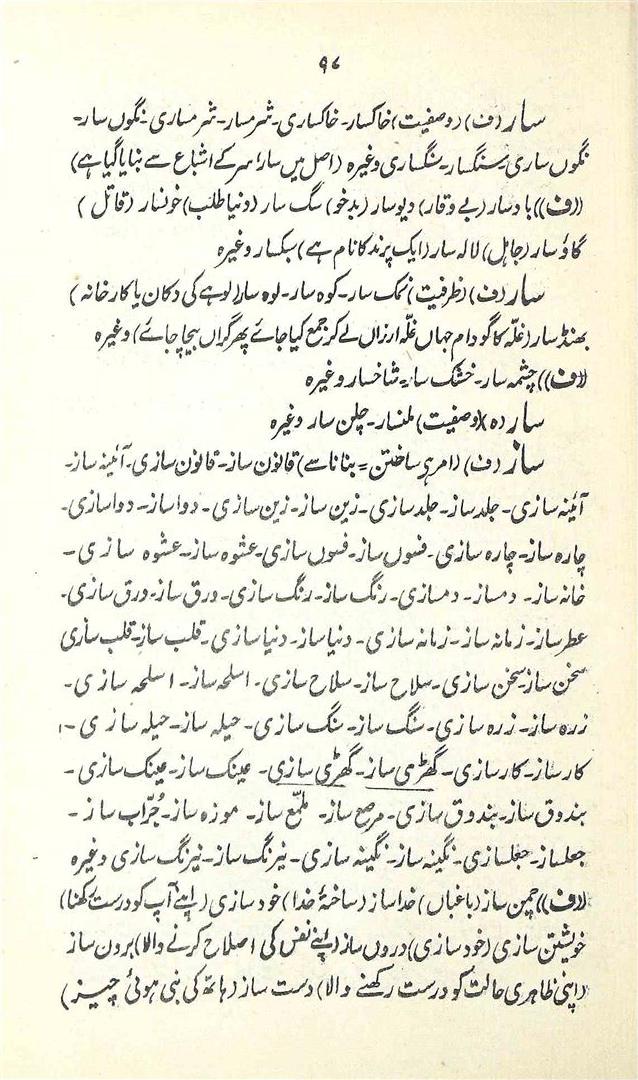 ۹۸
سار (ف) (وصفیت) خاکسار۔ خاکساری۔ شرمسار۔ شرمساری۔ نگوں سار۔
نگوں ساری۔ سنگسار۔ سنگساری وغیرہ (اصل میں سار اسر کے اشباع سے بنایا گیا ہے)
((ف)) باد سار (بے وقار) دیو سار (بدخو) سگ سار (دنیا طلب) خونسار (قاتل)
گاؤ سار (جاہل) لالہ سار (ایک پرند کا نام ہے) سبکسار وغیرہ
سار (ف) (ظرفیت) نمک سار۔ کوہ سار۔ لوہ سار (لوہے کی دکان یا کارخانہ)
بھنڈ سار (غلّہ کا گودام جہاں غلّہ ارزاں لے کر جمع کیا جائے پھر گراں بیچا جائے) وغیرہ
((ف)) چشمہ سار۔ خشک سار۔ شاخسار وغیرہ
سار (ہ) (وصفیت) ملنسار۔ چلن سار وغیرہ
ساز (ف) (امر ہے ساختن = بنانا سے) قانون ساز۔ قانون سازی۔ آئینہ ساز۔
آئینہ سازی۔ جلد ساز۔ جلد سازی۔ زین ساز۔ زین سازی۔ دوا ساز۔ دوا سازی۔
چارہ ساز۔ چارہ سازی۔ فسوں ساز۔ فسوں سازی۔ عشوہ ساز۔ عشوہ سازی۔
خانہ ساز۔ دمساز۔ دمسازی۔ رنگ ساز۔ رنگ سازی۔ ورق ساز۔ ورق سازی۔
عطر ساز۔ زمانہ ساز۔ زمانہ سازی۔ دنیا ساز۔ دنیا سازی۔ قلب ساز۔ قلب سازی
سخن ساز۔ سخن سازی۔ سلاح ساز۔ سلاح سازی۔ اسلحہ ساز۔ اسلحہ سازی۔
زرہ ساز۔ زرہ سازی۔ سنگ ساز۔ سنگ سازی۔ حیلہ ساز۔ حیلہ سازی۔
کار ساز۔ کار سازی۔ گھڑی ساز۔ گھڑی سازی۔ عینک ساز۔ عینک سازی۔
بندوق ساز۔ بندوق سازی۔ مرصع ساز۔ ملمّع ساز۔ موزہ ساز۔ جُرّاب ساز۔
جعلساز۔ جعلسازی۔ نگینہ ساز۔ نگینہ سازی۔ نیرنگ ساز۔ نیرنگ سازی وغیرہ
((ف)) چمن ساز (باغباں) خداساز (ساختۂ خدا) خود سازی (اپنے آپ کو درست کھنا)
خویشتن سازی (خود سازی) دروں ساز (اپنے نفس کی اصلاح کرنے والا) برون ساز
(اپنی ظاہری حالت کو درست رکھنے والا) دست ساز (ہاتھ کی بنی ہوئی چیز)